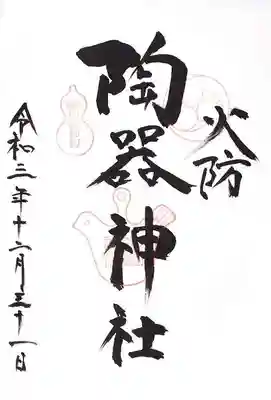 火防
陶器神社
令和三年十二月三十一日